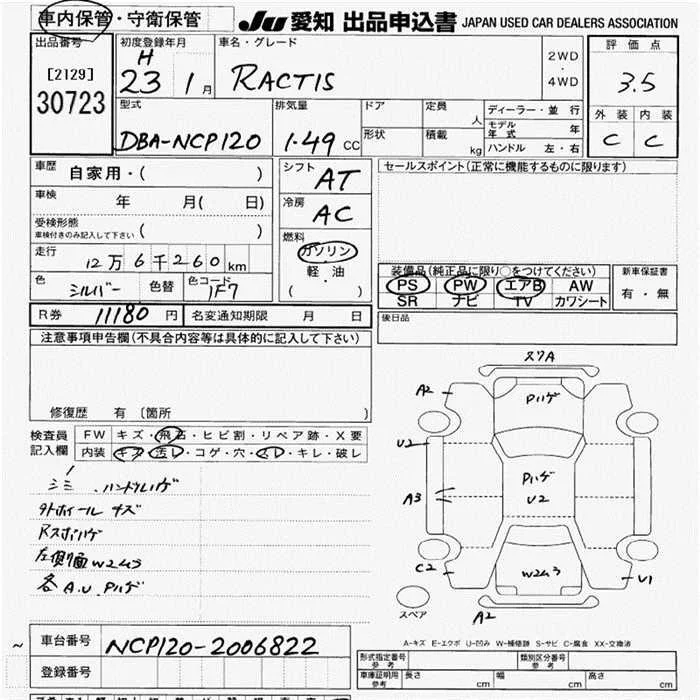 車内保管・守衛保管
JU 愛知 出品申込書 JAPAN USED CAR DEALERS ASSOCIATION
出品番号
[2129]
30723
初度登録年月
H
23 1月
車名・グレード
RACTIS
2WD
・
4WD
評価点
3.5
外装 内装
C C
型式
DBA-NCP120
排気量
1.49 CC
ドア
形状
定員 人
積載 kg
ディーラー・並行
モデル年式 年
ハンドル 左・右
車歴 自家用・( )
車検 年 月( 日)
受検形態
車検付きのみ記入して下さい ( )
走行 12万6千260km
色 シルバー 色替 色コード 1F7
シフト AT
冷房 AC
燃料
ガソリン
・
軽・油
( )
セールスポイント(正常に機能するものに限ります)
装備品(純正品に限り○をつけてください)
PS PW エアB AW
SR ナビ TV カワシート
新車保証書
有・無
R券 11180 円 名変通知期限 月 日
後日品
注意事項申告欄(不具合内容等は具体的に記入して下さい)
修復歴 有 〔箇所 〕
検査員記入欄
FW キズ・飛石・ヒビ割・リペア跡・X要
内装 キズ・汚レ・コゲ・穴・スレ・キレ・破レ
シミ.ハンドルハゲ
タトホイールキズ
Rスポハゲ
左側面W2U3
各A.U.Pハゲ
スリA
A2
Pハゲ
U2
Pハゲ
U2
A3
C2
W2U3
U1
A2
スペア
A-キズ E-エクボ U-凹み W-補修跡 S-サビ C-腐食 XX-交換済
車台番号 NCP120-2006822
登録番号
形式指定番号
参考
類別区分番号
参考
車庫証明用
参考
長さ cm 幅 cm 高さ cm